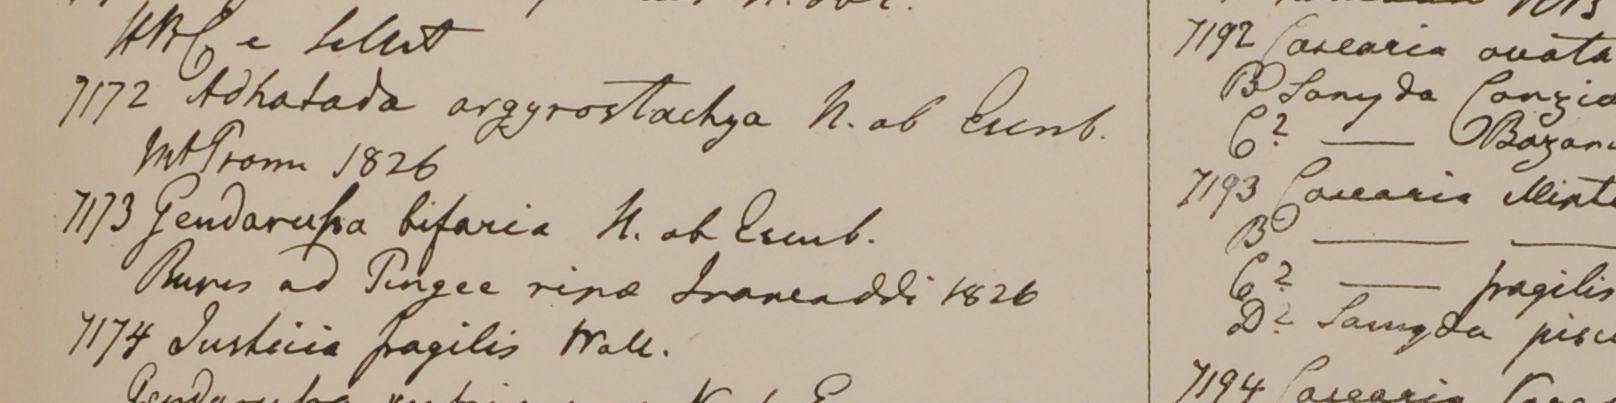 HBC e
7172 Adhatada argyrostachya N. ab Esenb.
Mt Prom 1826
7173 Gendarussa bifaria N. ab Esenb.
Burus ad Pingee ripæ Irawaddi 1826
7174 Justicia fragilis Wall.
7192 Casearia ovata
B Samyda
C? —
7193 Casearia
B — —
C? — fragilis
D? Samyda pisci
7194 Casearia